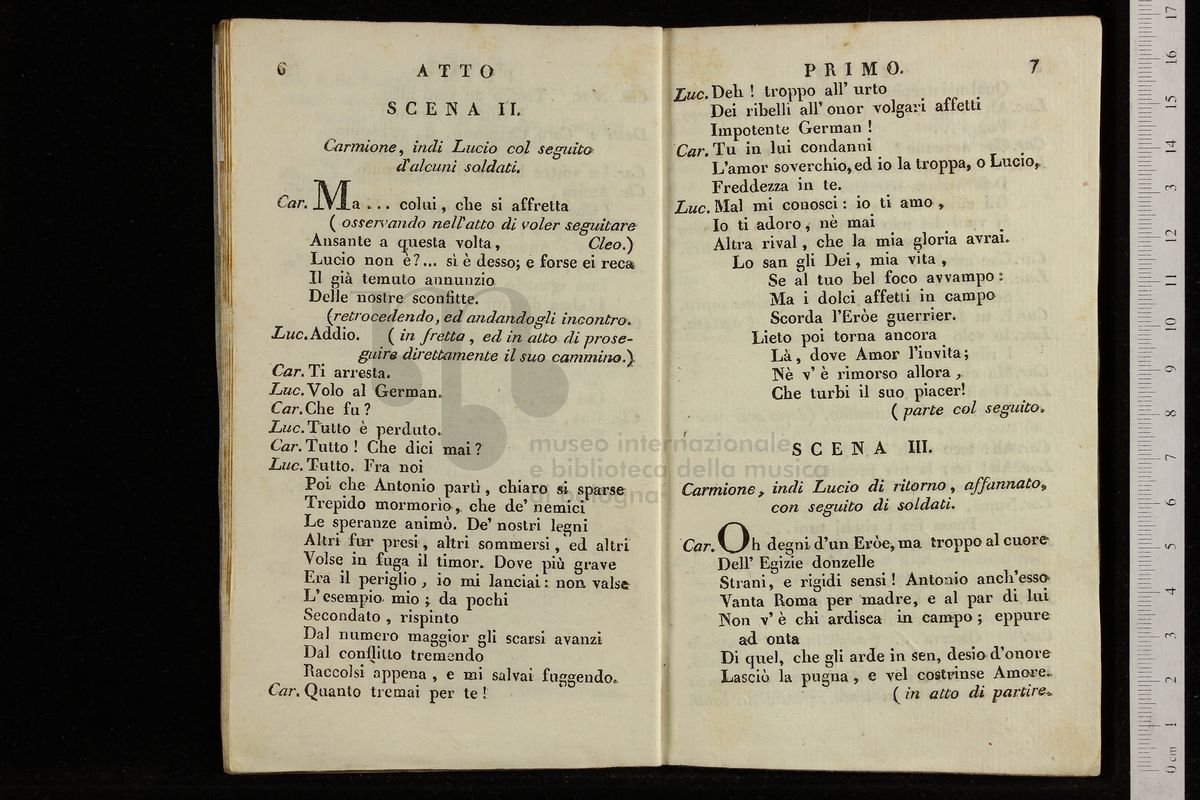 6 ATTO
SCENA II.
Carmione, indi Lucio col seguito
d'alcuni soldati.
Car. Ma ... colui, che si affretta
( osservando nell'atto di voler seguitare
Ansante a questa volta, Cleo.)
Lucio non è?... sì è desso; e forse ei reca
Il già temuto annunzio
Delle nostre sconfitte.
(retrocedendo, ed andandogli incontro.
Luc. Addio. ( in fretta, ed in atto di prose-
guire direttamente il suo cammino.)
Car. Ti arresta.
Luc. Volo al German.
Car. Che fu?
Luc. Tutto è perduto.
Car. Tutto! Che dici mai?
Luc. Tutto. Fra noi
Poi che Antonio partì, chiaro si sparse
Trepido mormorio, che de' nemici
Le speranze animò. De' nostri legni
Altri fur presi, altri sommersi, ed altri
Volse in fuga il timor. Dove più grave
Era il periglio, io mi lanciai: non valse
L'esempio mio; da pochi
Secondato, rispinto
Dal numero maggior gli scarsi avanzi
Dal conflitto tremendo
Raccolsi appena, e mi salvai fuggendo.
Car. Quanto tremai per te!
PRIMO. 7
Luc. Deh! troppo all' urto
Dei ribelli all' onor volgari affetti
Impotente German!
Car. Tu in lui condanni
L'amor soverchio, ed io la troppa, o Lucio,
Freddezza in te.
Luc. Mal mi conosci: io ti amo,
Io ti adoro, nè mai
Altra rival, che la mia gloria avrai.
Lo san gli Dei, mia vita,
Se al tuo bel foco avvampo:
Ma i dolci affetti in campo
Scorda l'Eròe guerrier.
Lieto poi torna ancora
Là, dove Amor l'invita;
Nè v' è rimorso allora,
Che turbi il suo piacer!
( parte col seguito.
SCENA III.
Carmione, indi Lucio di ritorno, affannato,
con seguito di soldati.
Car. Oh degni d'un Eròe, ma troppo al cuore
Dell' Egizie donzelle
Strani, e rigidi sensi! Antonio anch'esso
Vanta Roma per madre, e al par di lui
Non v' è chi ardisca in campo; eppure
ad onta
Di quel, che gli arde in sen, desio d'onore
Lasciò la pugna, e vel costrinse Amore.
( in atto di partire.
museo internazionale
e biblioteca della musica
di bologna
0 cm 1 2 3 4 5 6 7 8 9 10 11 12 13 14 15 16 17